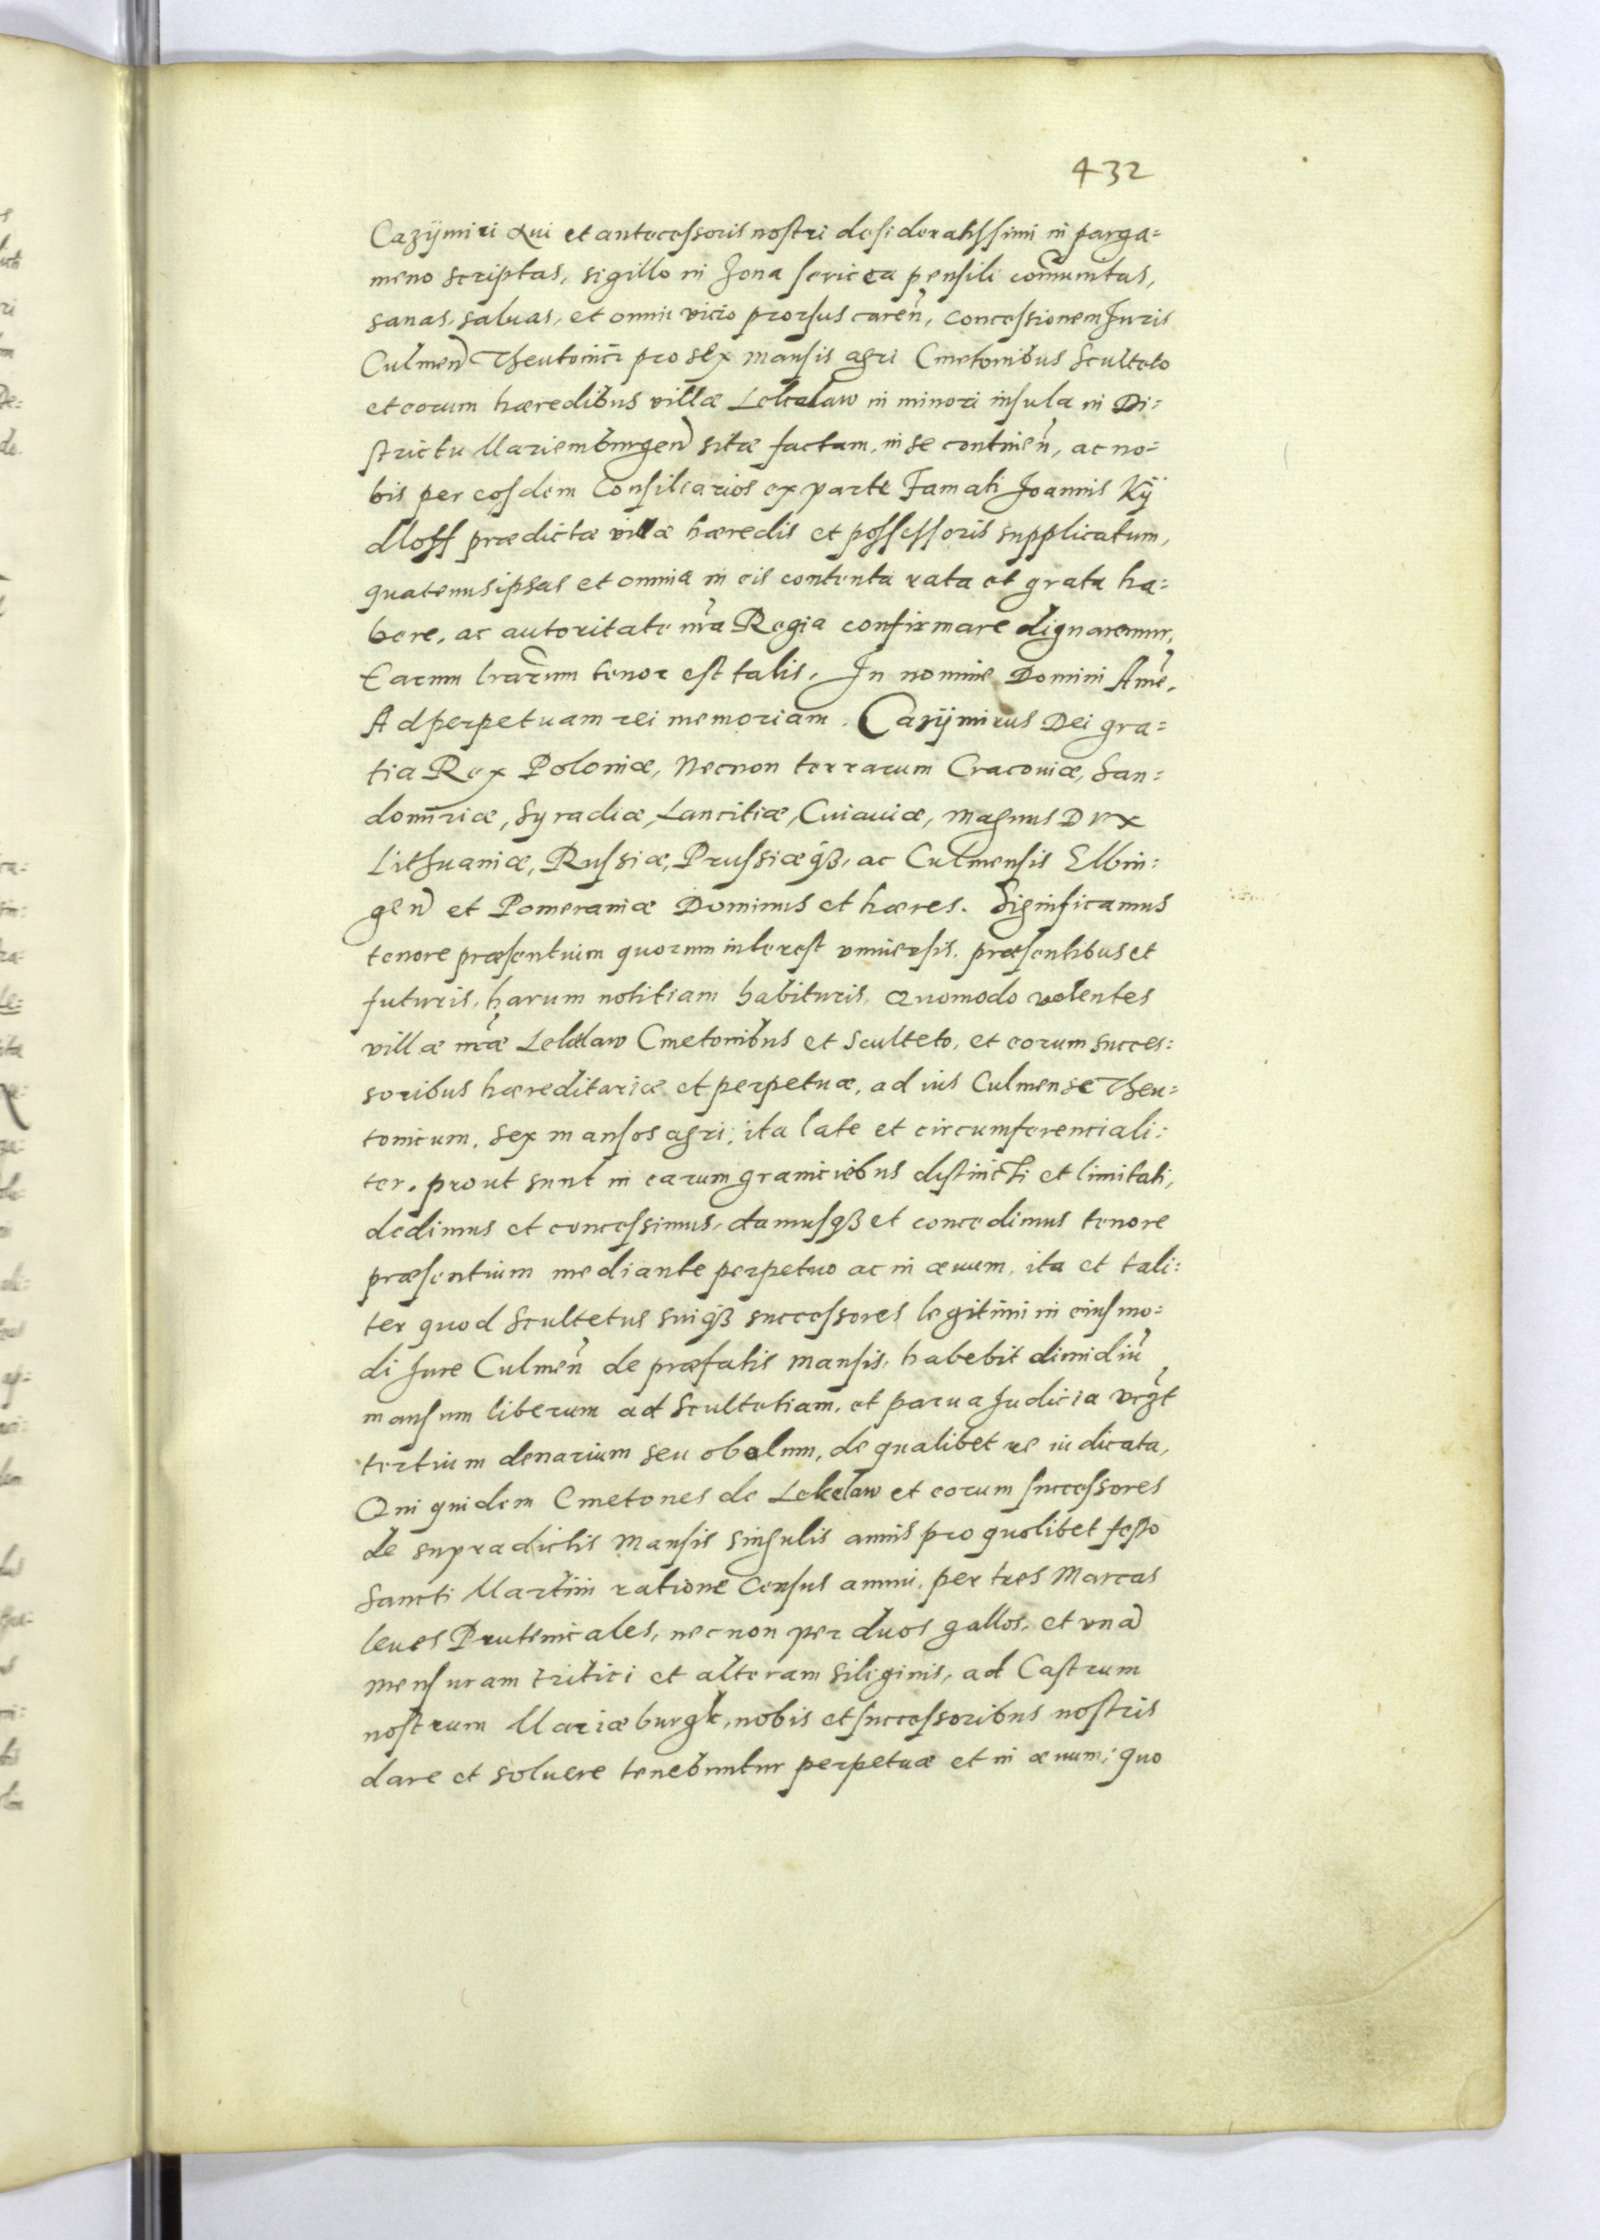 432
Cazÿmiri Aui et antecessoris nostri desideratissimi in parga=
meno scriptas, sigillo in Zona sericea pensili com̃unitas,
sanas, saluas, et omni vicio prorsus careñ, concessionem Juris
Culmeñ Theutonici pro sex mansis agri Cmetonibus Sculteto
et eorum hæredibus villæ Lekelaw in minori insula in Di=
strictu Mariemburgeñ sitæ factam, in se contineñ, ac no=
bis per eosdem Consiliarios ex parte Famati Joannis Kÿ
dloff prædictæ villæ hæredis et possessoris supplicatum,
quatenus ipsas et omnia in eis contenta rata et grata ha=
bere, ac autoritate nr̃a Regia confirmare dignaremur,
Earum lr̃arum tenor est talis, In nomine Domini Ameñ,
Ad perpetuam rei memoriam. Cazÿmirus Dei gra=
tia Rex Poloniæ, Necnon terrarum Cracouiæ, San=
domĩriæ, Syradiæ, Lancitiæ, Cuiauiæ, Magnus Dux
Lithuaniæ, Russiæ, Prussiæqꝫ, ac Culmensis Elbin=
geñ et Pomeraniæ Dominus et hæres. Significamus
tenore præsentium quorum interest vniuersis, præsentibus et
futuris, harum notitiam habituris, Quomodo volentes
villæ nr̃æ Lekelaw Cmetonibus et Sculteto, et eorum succes=
soribus hæreditariæ et perpetuæ, ad ius Culmense Theu=
tonicum, Sex mansos agri, ita late et circumferenciali=
ter, prout sunt in earum graniciebus distincti et limitati,
dedimus et concessimus, damusqꝫ et concedimus tenore
præsentium mediante perpetuo ac in æuum, ita et tali=
ter quod Scultetus suiqꝫ successores legitimi in eiusmo=
di Jure Culmeñ de præfatis mansis, habebit dimidiũ
mansum liberum ad Scultetiam, et parua Judicia vꝫt
tertium denarium seu obolum, de qualibet re iudicata,
Qui quidem Cmetones de Lekelaw et eorum successores
de supradictis Mansis singulis annis pro quolibet festo
Sancti Martini ratione Census annui, per tres Marcas
leues Prutenicales, necnon per duos gallos, et vnã
mensuram tritici et alteram siliginis, ad Castrum
nostrum Mariæburgk, nobis et successoribus nostris
dare et soluere tenebuntur perpetuæ et in æuum; quo